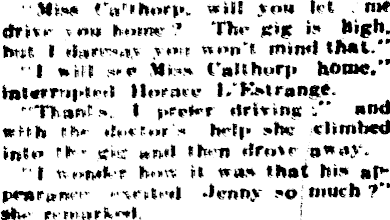 "Miss Calthorp, will you let me
drive you home? The gig is high,
but I daresay you won't mind that."
"I will see Miss Calthorp home,"
interrupted Horace L'Estrange.
"Thanks, I prefer driving;" and
with the doctor's help she climbed
into the gig and then drove away.
"I wonder how it was that his ap-
pearance excited Jenny so much?"
she remarked.